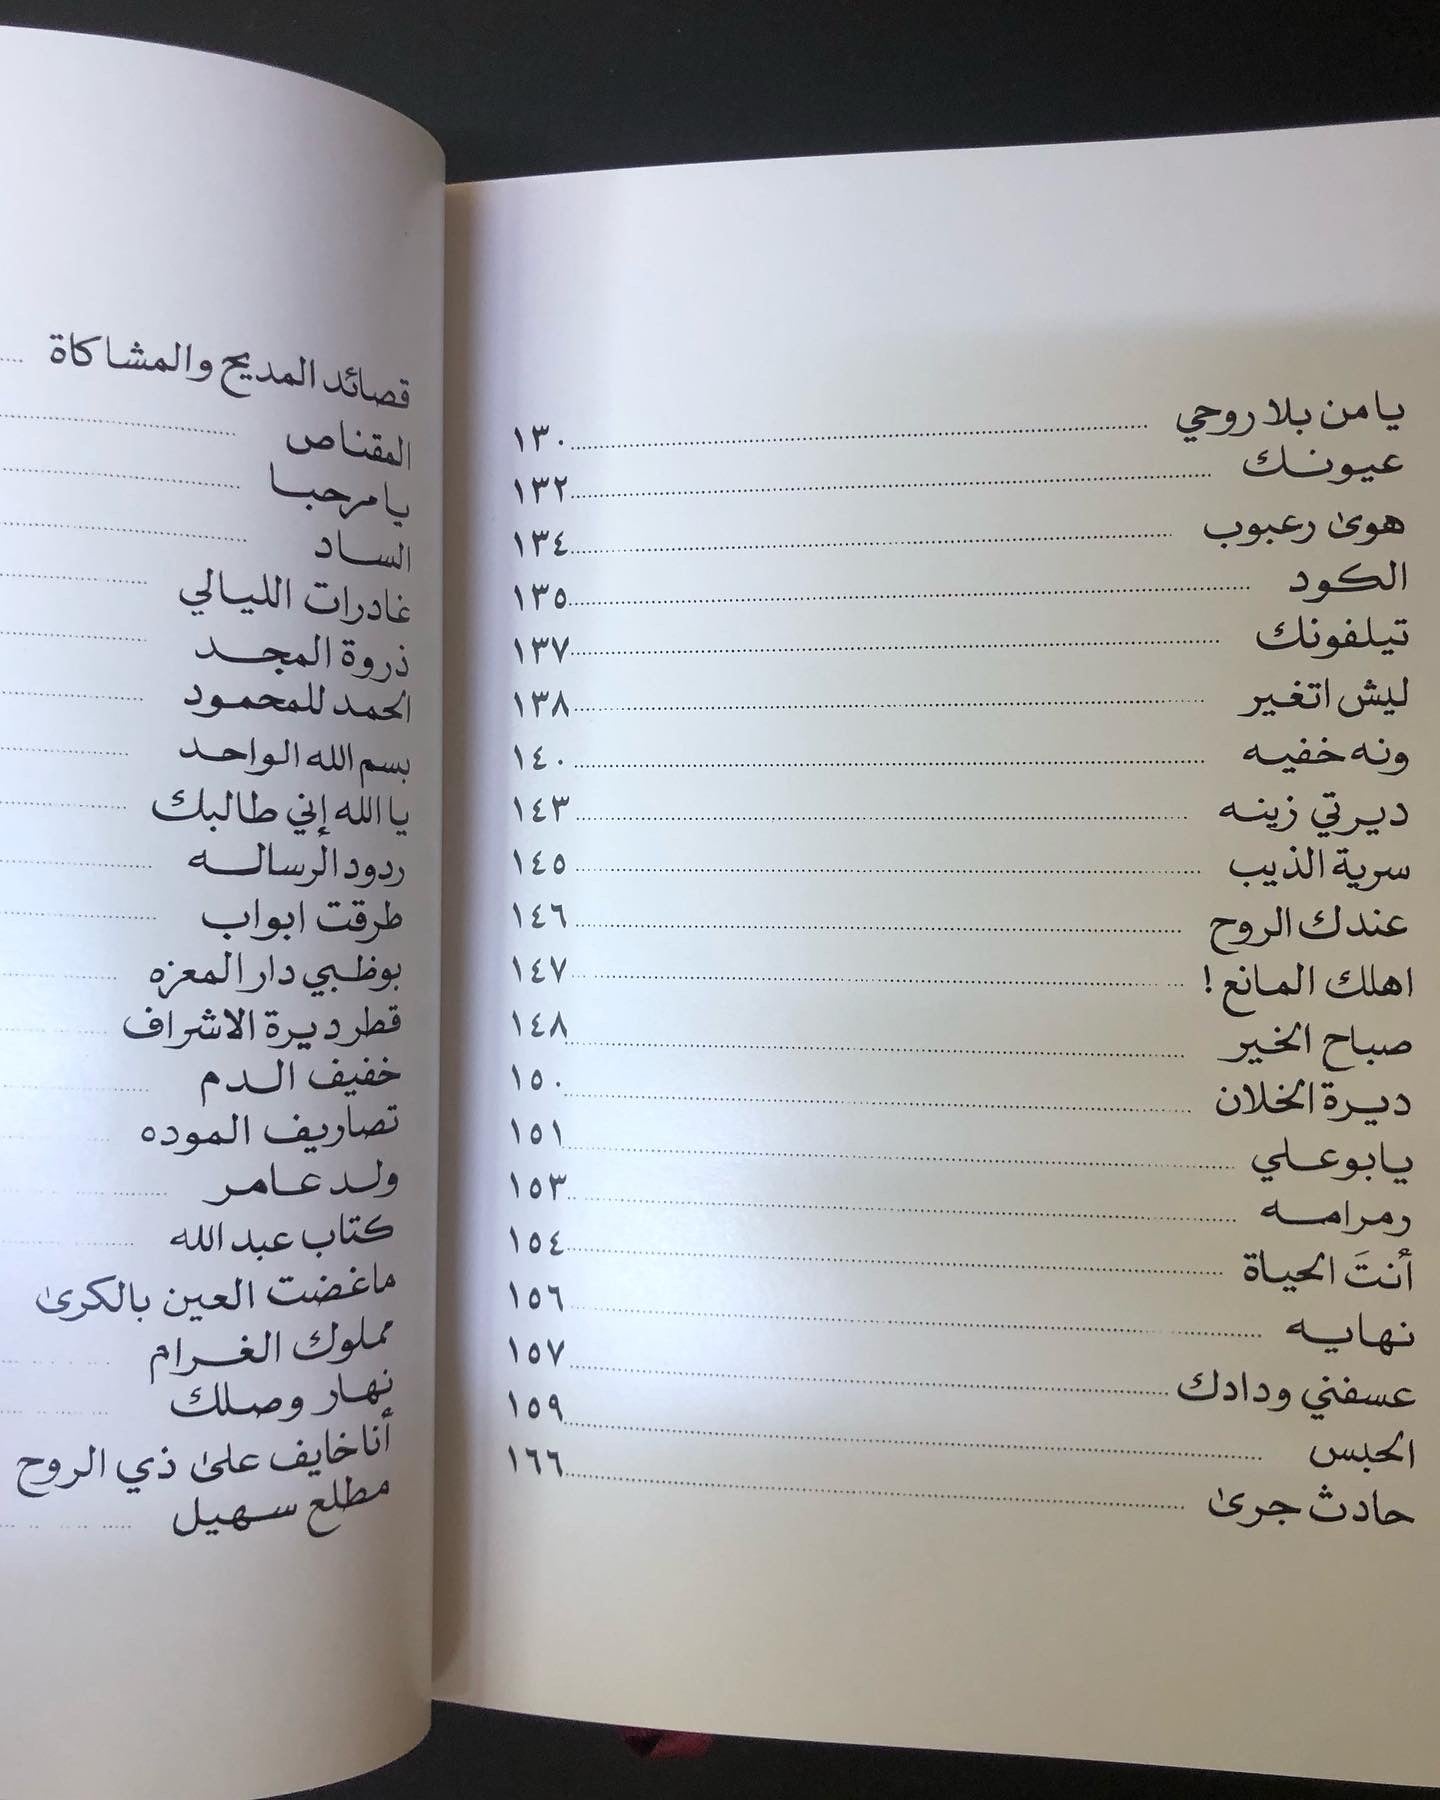 يا من بلا روحي ١٣٠
عيونك ١٣٢
هوىٰ رعبوب ١٣٤
الكود ١٣٥
تيلفونك ١٣٧
ليش اتغير ١٣٨
ونه خفيه ١٤٠
ديرتي زينه ١٤٣
سرية الذيب ١٤٥
عندك الروح ١٤٦
اهلك المانع! ١٤٧
صباح الخير ١٤٨
ديرة الخلان ١٥٠
يا بوعلي ١٥١
رمرامه ١٥٣
أنتَ الحياة ١٥٤
نهايه ١٥٦
عسفني ودادك ١٥٧
الحبس ١٥٩
حادث جرىٰ ١٦٦
قصائد المديح والمشاكاة
المقناص
يا مرحبا
الساد
غادرات الليالي
ذروة المجد
الحمد للمحمود
بسم الله الواحد
يا الله إني طالبك
ردود الرساله
طرقت ابواب
بوظبي دار المعزه
قطر ديرة الاشراف
خفيف الدم
تصاريف الموده
ولد عامر
كتاب عبدالله
ما غضت العين بالكرىٰ
مملوك الغرام
نهار وصلك
أنا خايف علىٰ ذي الروح
مطلع سهيل